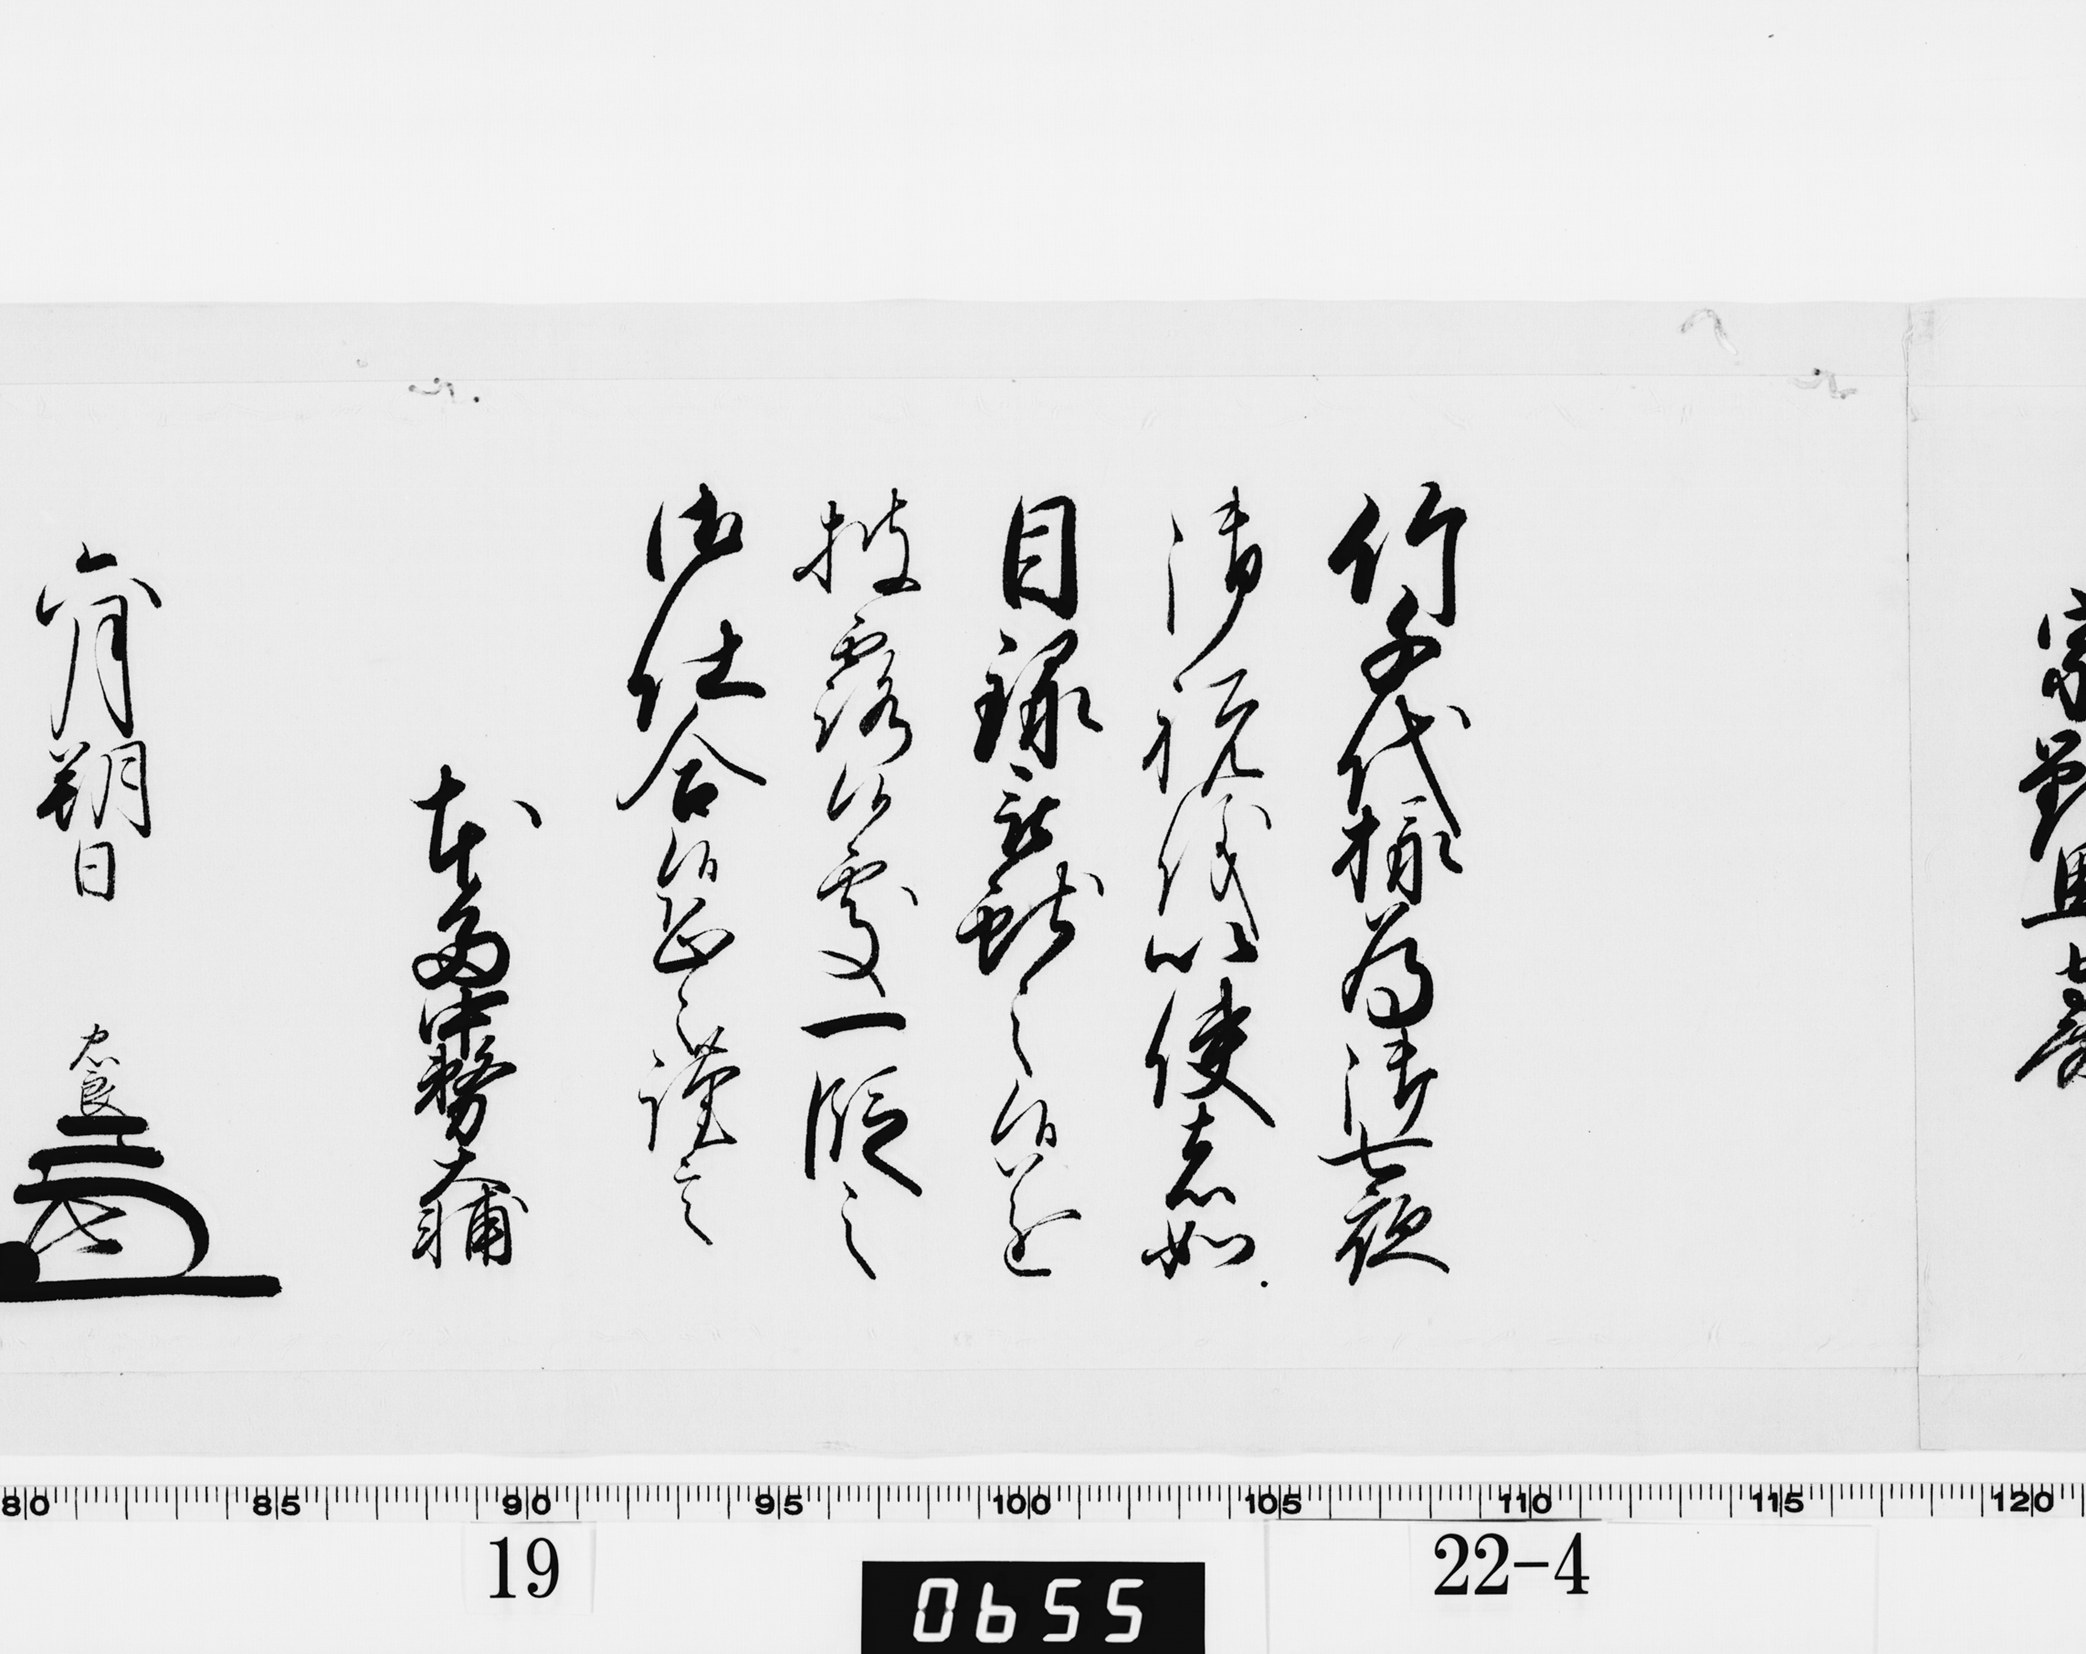 宗對馬
竹千代様為御七夜
御祝儀以使者如
目録被献之候遂
披露候處一段之
御仕合候恐々謹言
本多中務大輔
六月朔日
忠良
80 85 90 95 100 105 110 115 120
19
0655
22-4